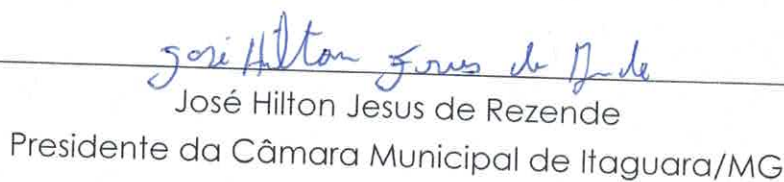 José Hilton Jesus de Rezende
José Hilton Jesus de Rezende
Presidente da Câmara Municipal de Itaguara/MG